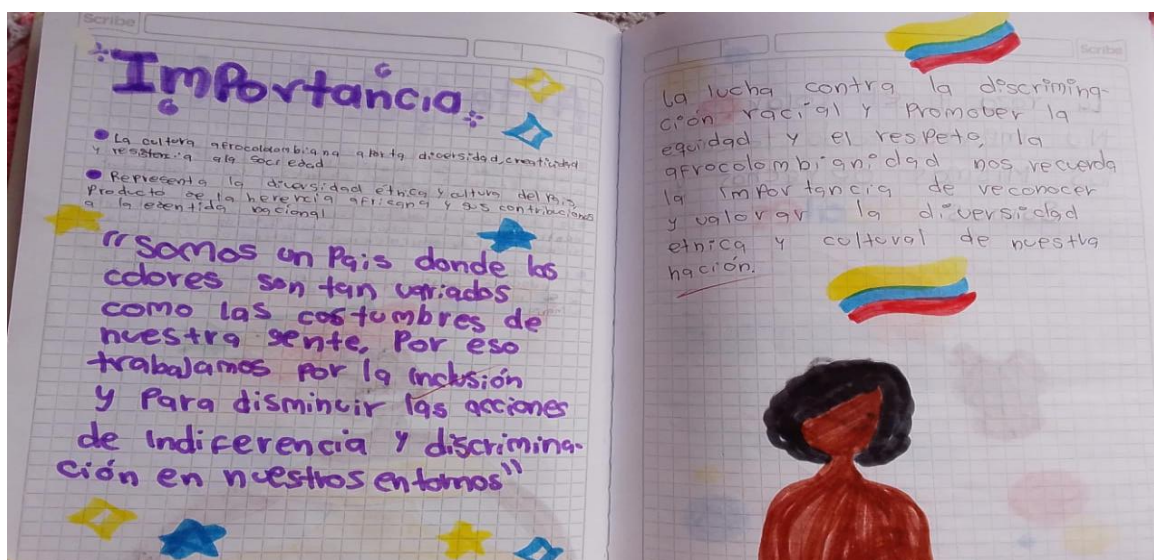 Scribe
Importancia
La cultura afrocolombiana aporta diversidad, creatividad
y resistencia ala sociedad
Representa la diversidad etnica y cultura del País,
Producto de la herencia africana y sus contribuciones
a la edentida nacional
"Somos un País donde los
colores son tan variados
como las costumbres de
nuestra gente, Por eso
trabajamos por la inclusión
y Para disminuir las acciones
de indiferencia y discrimina-
ción en nuestros entornos"
Scribe
La lucha contra la discrimina-
ción racial y Promober la
equidad y el respeto, la
afrocolombianidad nos recuerda
la importancia de reconocer
y valorar la diversidad
etnica y cultural de nuestra
nación.